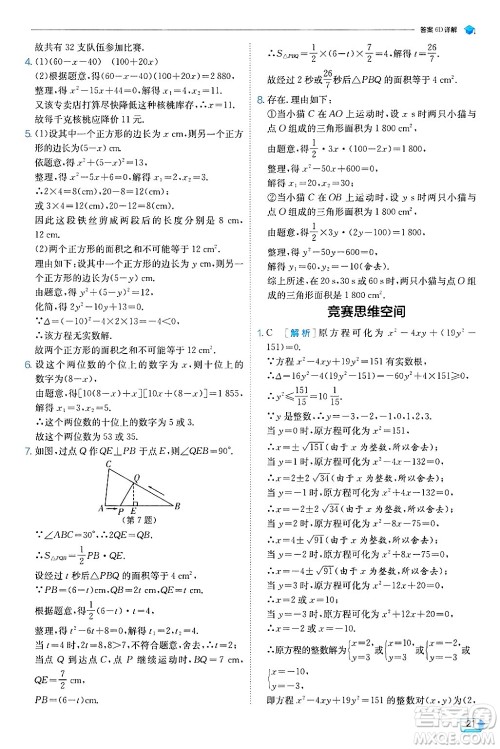 答案 6D 详解
故共有 32 支队伍参加比赛.
4. (1)(60-x-40) (100+20x)
(2)根据题意,得(60-x-40)(100+20x)=2 240,
整理,得 x²-15x+
又该专卖店打算尽快降低这种核桃库存,
故每千克核桃应降价 11 元.
5. (1)设其中一个正方形的边长为 x cm,则另一个正方形的边长为(5-x) cm.
依题意,得 x²+(5-x)²=17,
整理,得 x²-5x+4=0,
解得 x₁=4,x₂=1.
∴4×4=16(cm),20-16=4(cm)或
因此这段铁丝剪成两段后的长度分别是 4 cm,16 cm.
(2)两个正方形的面积之和不可能等于 12 cm².
理由如下:设其中一个正方形的边长为 y cm,则另一个正方形的边长为(5-y) cm.
由题意,得 y²+(5-y)²=12,
化简,得 2y²-10y+13=0.
∵Δ=(-10)²-4×2×13=-4<0,
∴该方程无实数根.
故两个正方形的面积之和不可能等于 12 cm².
6. 设这个两位数的个位上的数字为 x,则十位上的数字为(8-x).
由题意,得[10(8-x)+x][10x+(8-x)]=1 855,
解得 x₁=3,x₂=5.
当这个两位数的十位上的数字为 5 时,个位上的数字为 3;当这个两位数的十位上的数字为 3 时,个位上的数字为 5.
故这个两位数为 53 或 35.
7. 如图,过点 Q 作 QE⊥PB 于点 E,则∠QEB=90°.
C
Q
A P E B
(第 7 题)
∵∠ABC=30°,∴2QE=QB.
∴S△PQB=1/2 PB·QE.
设经过 t 秒后△PBQ 的面积等于 4 cm²,则 PB=(6-t)cm,QB=2t cm,QE=t cm.
根据题意,得 1/2(6-t)·t=4,
即 t²-6t+8=0,∴t₁=2,t₂=4.
当 t=4 时,2t=8,8>7,不合题意,舍去,∴t=2.
当点 Q 到达点 C,点 P 继续运动时,QB=7 cm,QE=7/2 cm,
PB=(6-t)cm,
S△PBQ=1/2×7/2×(6-t)=4,解得 t=26/7.
故经过 2 秒或 26/7 秒后,△PBQ 的面积等于 4 cm².
8. 存在. 理由如下:
①当小猫 C 在 AO 上运动时,设 x s 时两只小猫与点 O 组成的三角形面积为 1 800 cm².
由题意,得 1/2·3x·(100-2x)=1 800,
整理,得 x²-50x+
解得 x₁=20,x₂=30.
②当小猫 C 在 OB 上运动时,设 y s 时两只小猫与点 O 组成的三角形面积为 1 800 cm².
由题意,得 1/2×3y·(2y-100)=1 800,
整理,得 y²-50y-600=0,
解得 y₁=60,y₂=-10(舍去).
综上所述,20 s、30 s 或 60 s 时,两只小猫与点 O 组成的三角形的面积为 1 800 cm².
竞赛思维空间
1. C [解析]原方程可化为 x²-4xy+(19y²-151)=0.
∵方程 x²-4xy+(19y²-151)=0 有整数根,
∴Δ=16y²-4(19y²-151)≥0,
∴y²≤151/15≈10.
∵y 是整数,∴y=0 或±1 或±2 或±3.
当 y=0 时,原方程可化为 x²-151=0,
∴x=±√151(由于 x 为整数,所以舍去);
当 y=1 时,原方程可化为 x²-4x-132=0,
∴x=2±2√34(由于 x 为整数,所以舍去);
当 y=-1 时,原方程可化为 x²+4x-132=0,
∴x=-2±2√34(由于 x 为整数,所以舍去);
当 y=2 时,原方程可化为 x²-8x-75=0,
∴x=4±√91(由于 x 为整数,所以舍去);
当 y=-2 时,原方程可化为 x²+8x-75=0,
∴x=-4±√91(由于 x 为整数,所以舍去);
当 y=3 时,原方程可化为 x²-12x+20=0,
∴x=2 或 x=10;
当 y=-3 时,原方程可化为 x²+12x+20=0,
∴x=-2 或 x=-10,
∴原方程的整数解为
即原方程 x²-4xy+19y²=151 的整数对(x,y)为(2,
21